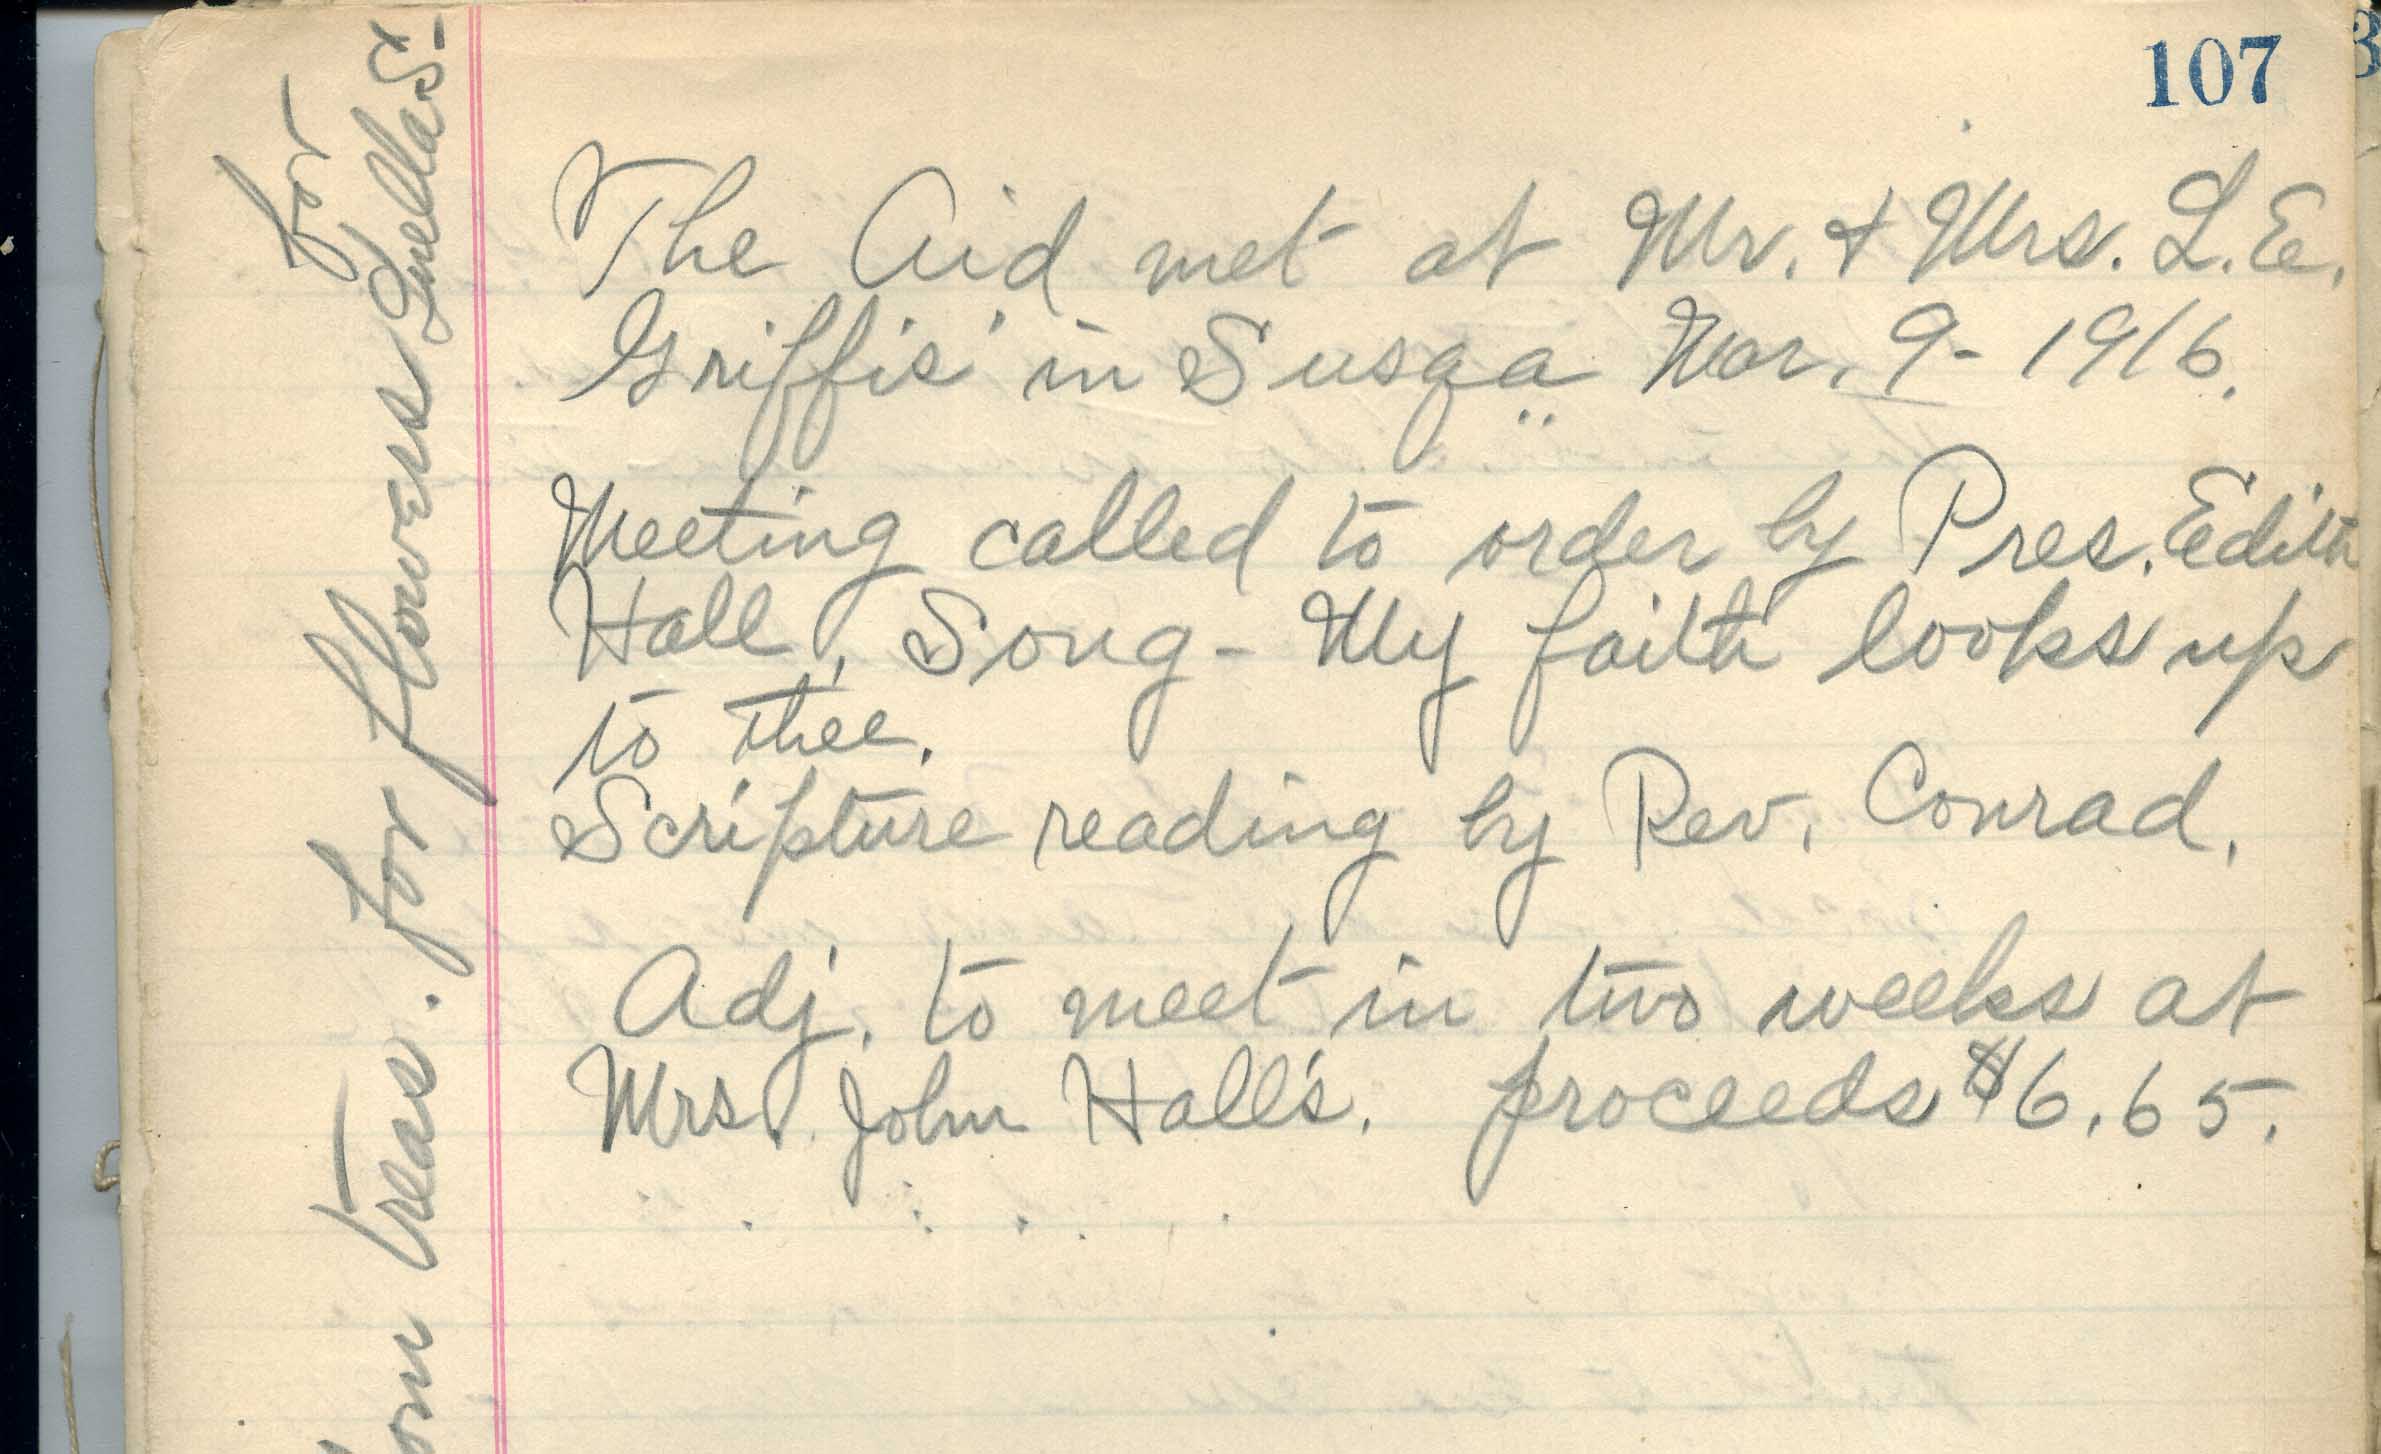 107
The Aid met at Mr. & Mrs. L. E.
Griffis' in Susqa Mar. 9 - 1916.
Meeting called to order by Pres. Edith
Hall, Song - My faith looks up
to thee.
Scripture reading by Rev. Conrad.
Adj. to meet in two weeks at
Mrs. John Hall's. proceeds $6.65.
Treas. for flowers for
Luella S-